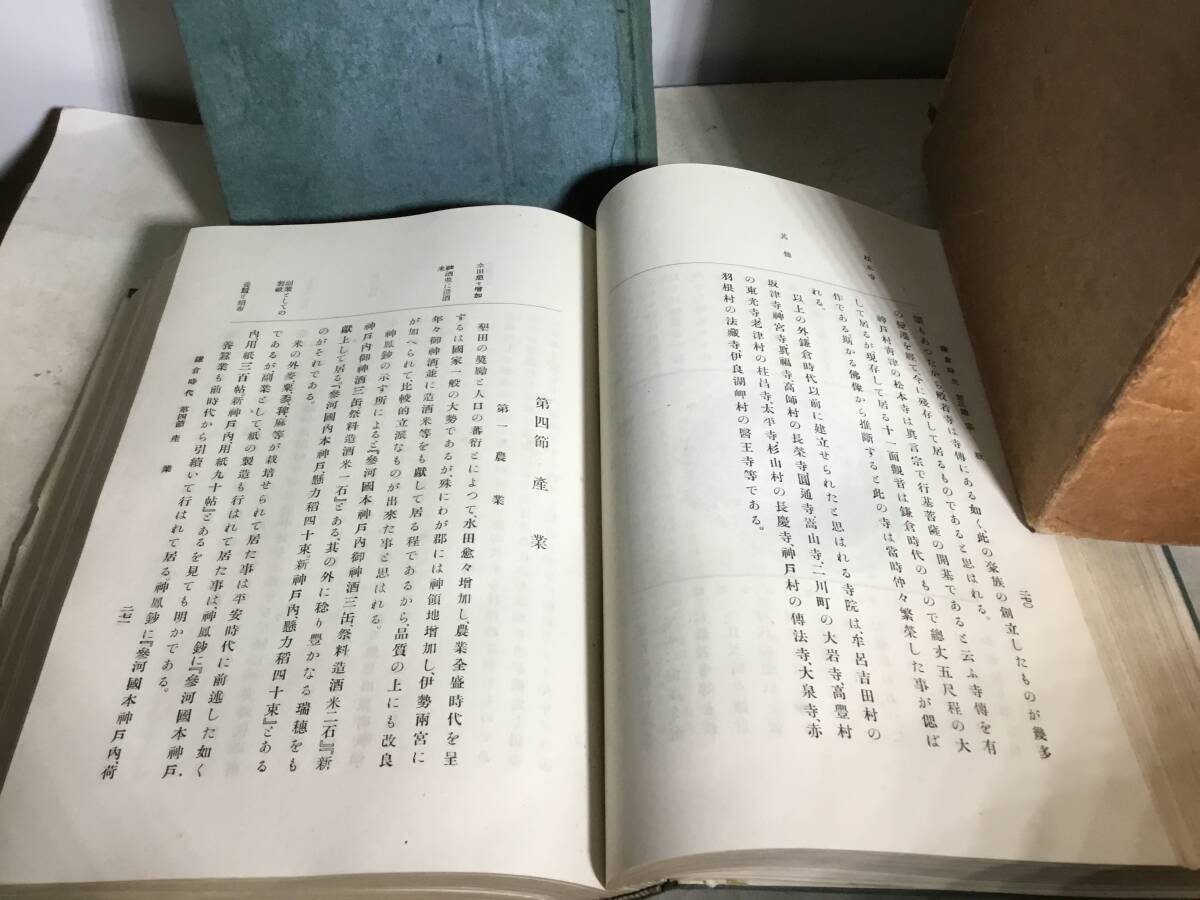 二七〇
創もあつたから般若寺は寺傳にある如く、此の豪族の創立したものが幾多
の變遷を經て今に殘存して居るものであると思はれる。
松本寺
神戸村靑津の松本寺は眞言宗で行基菩薩の開基であると云ふ寺傳を有
して居るが現存して居る十一面觀音は鎌倉時代のもので總丈五尺程の大
作である斯かる佛像から推斷すると此の寺は當時仲々繁榮した事が偲ば
れる。
其他
以上の外鎌倉時代以前に建立せられたと思はれる寺院は、牟呂吉田村の
坂津寺神宮寺、眞福寺、高師村の長榮寺、圓通寺、嵩山寺、二川町の大岩寺、高豐村
の東光寺老津村の柱昌寺、太平寺、杉山村の長慶寺、神戸村の傳法寺、大泉寺、赤
羽根村の法藏寺伊良湖岬村の醫王寺等である。
第四節 產業
第一 農業
水田愈々增加
墾田の奬勵と人口の蕃衍とによつて、水田愈々增加し、農業全盛時代を呈
するは國家一般の大勢であるが殊にわが郡には神領地增加し、伊勢兩宮に
神酒並に造酒米
年々御神酒並に造酒米等をも獻して居る程であるから、品質の上にも改良
が加へられて比較的立派なものが出來た事と思はれる。
神鳳鈔の示す所によると『參河國本神戸內御神酒三缶、祭料造酒米二石』『新
神戸內御神酒三缶、祭料造酒米一石』とある、其の外に稔り豐かなる瑞穗をも
獻上して居る『參河國內本神戸、懸力稻四十束、新神戸內、懸力稻四十束』とある
のがそれである。
副業としての製紙
米の外麥粟黍稗麻等が栽培せられて居た事は平安時代に前述した如く
であるが副業として、紙の製造も行はれて居た事は、神鳳鈔に『參河國本神戸、
內用紙三百帖新神戸內用紙九十帖』とあるを見ても明かである。
養蠶業も前時代から引續いて行はれて居る。神鳳鈔に『參河國本神戸內、荷
鎌倉時代 第四節 產業
二七一